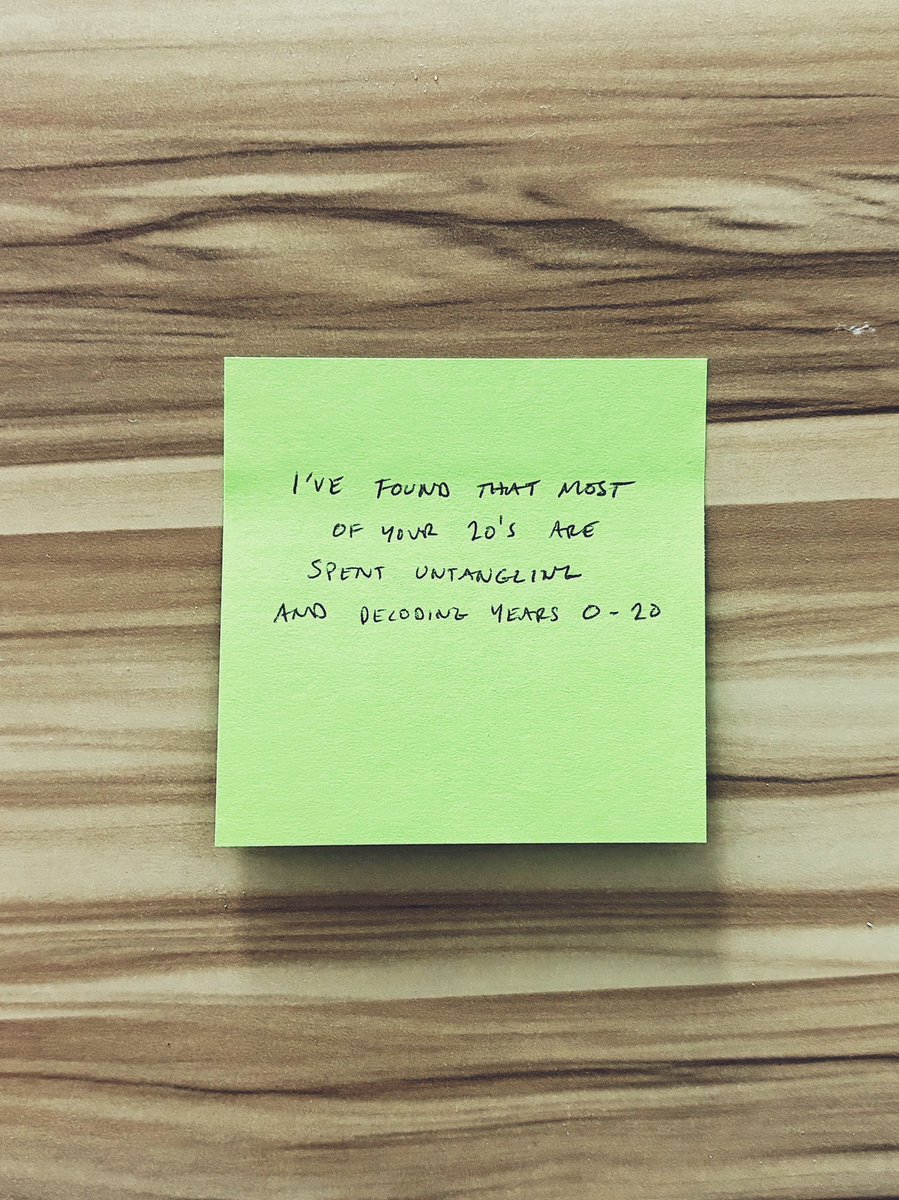 I'VE FOUND THAT MOST
OF YOUR 20'S ARE
SPENT UNTANGLING
AND DECODING YEARS 0-20